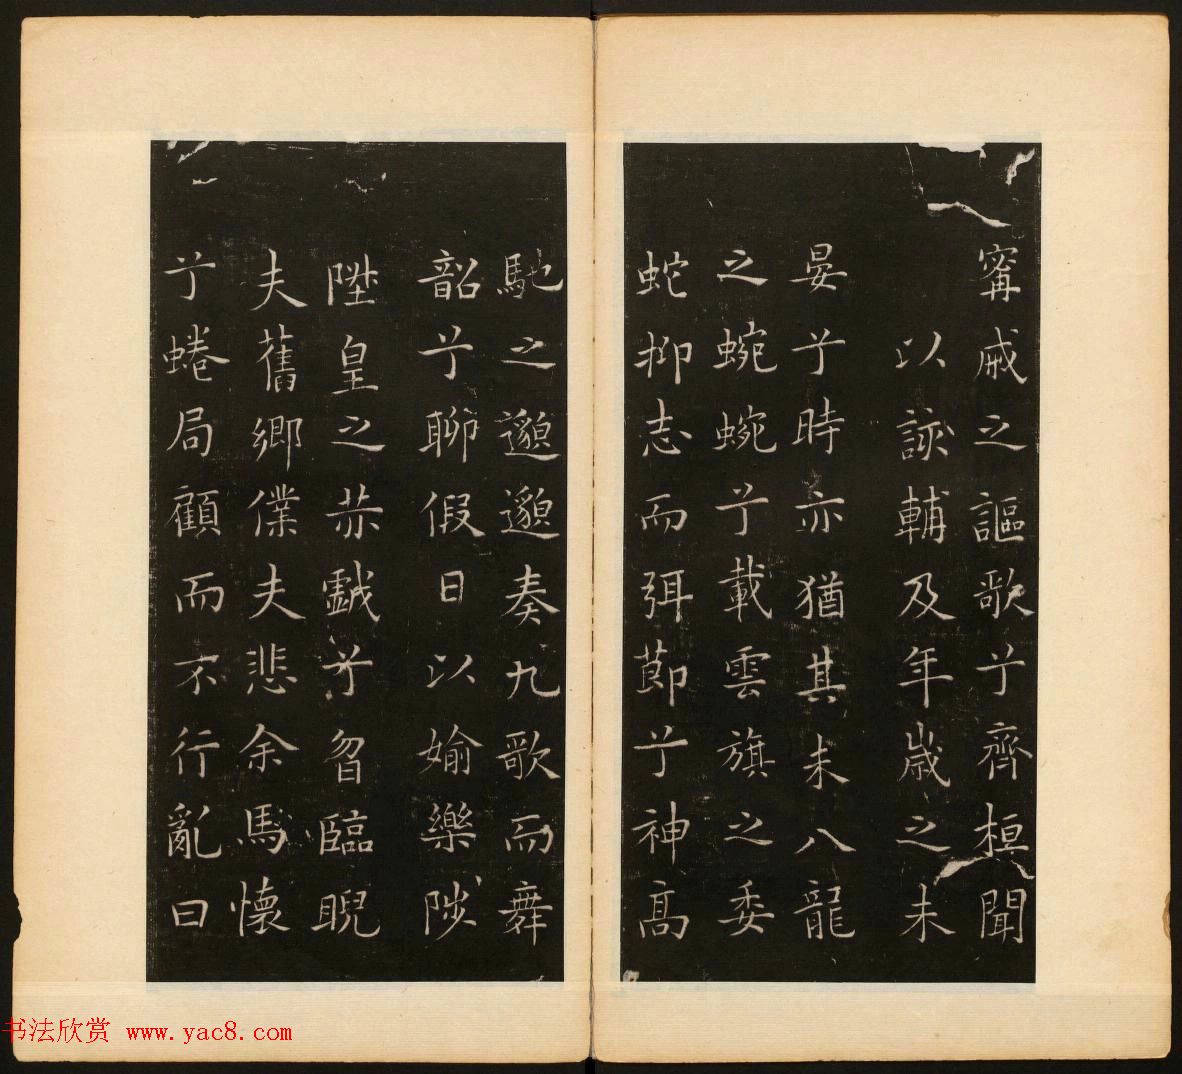 甯戚之謳歌兮齊桓聞
以該輔及年歲之未
晏兮時亦猶其未八龍
之蜿蜿兮載雲旗之委
蛇抑志而弭節兮神高
馳之邈邈奏九歌而舞
韶兮聊假日以媮樂陟
陞皇之赫戲兮忽臨睨
夫舊鄉僕夫悲余馬懷
兮蜷局顧而不行亂曰
书法欣赏 www.yac8.com